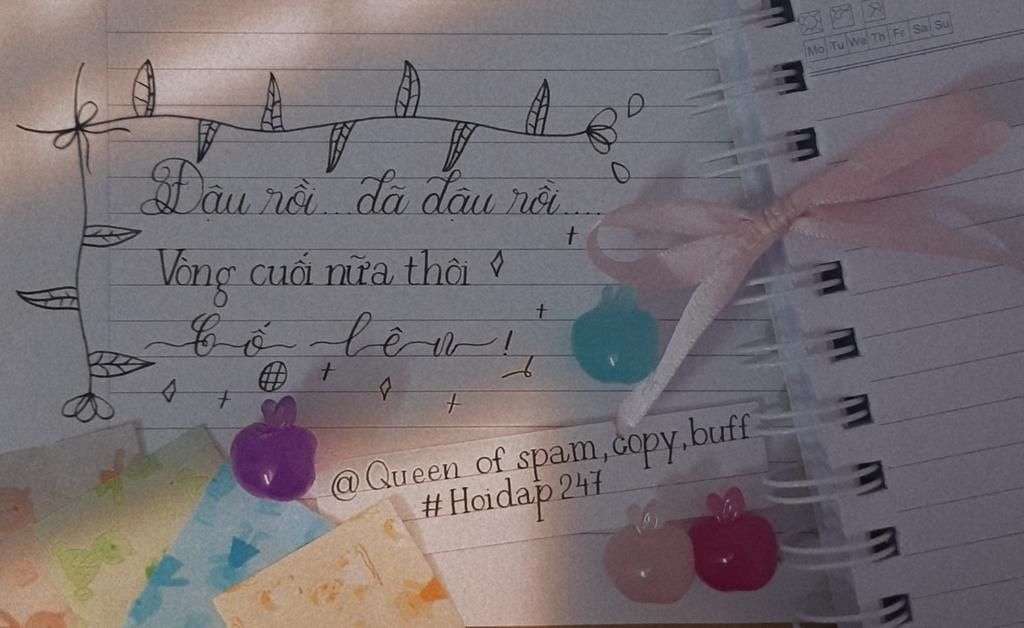 Mo Tu We Th Fr Sa Su
Đậu rồi...đã đậu rồi....
Vòng cuối nữa thôi
Cố lên!
@Queen of spam,copy,buff
#Hoidap247